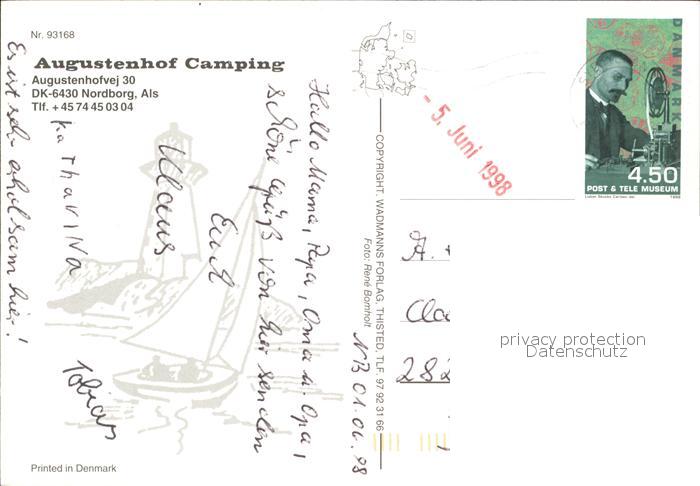 Nr. 93168
Augustenhof Camping
Augustenhofvej 30
DK-6430 Nordborg, Als
Tlf. + 45 74 45 03 04
NB 01.06.98
Hallo Mama, Papa, Oma u. Opa,
schöne Grüße von hier senden
Euch
Klaus
Katharina
Tobias
Es ist sehr erholsam hier!
Printed in Denmark
COPYRIGHT, WADMANNS FORLAG, THISTED, TLF. 97 92 31 66
Foto: René Bomholt
- 5. Juni 1998
DANMARK
4.50
POST & TELE MUSEUM
1998
282
privacy protection
Datenschutz